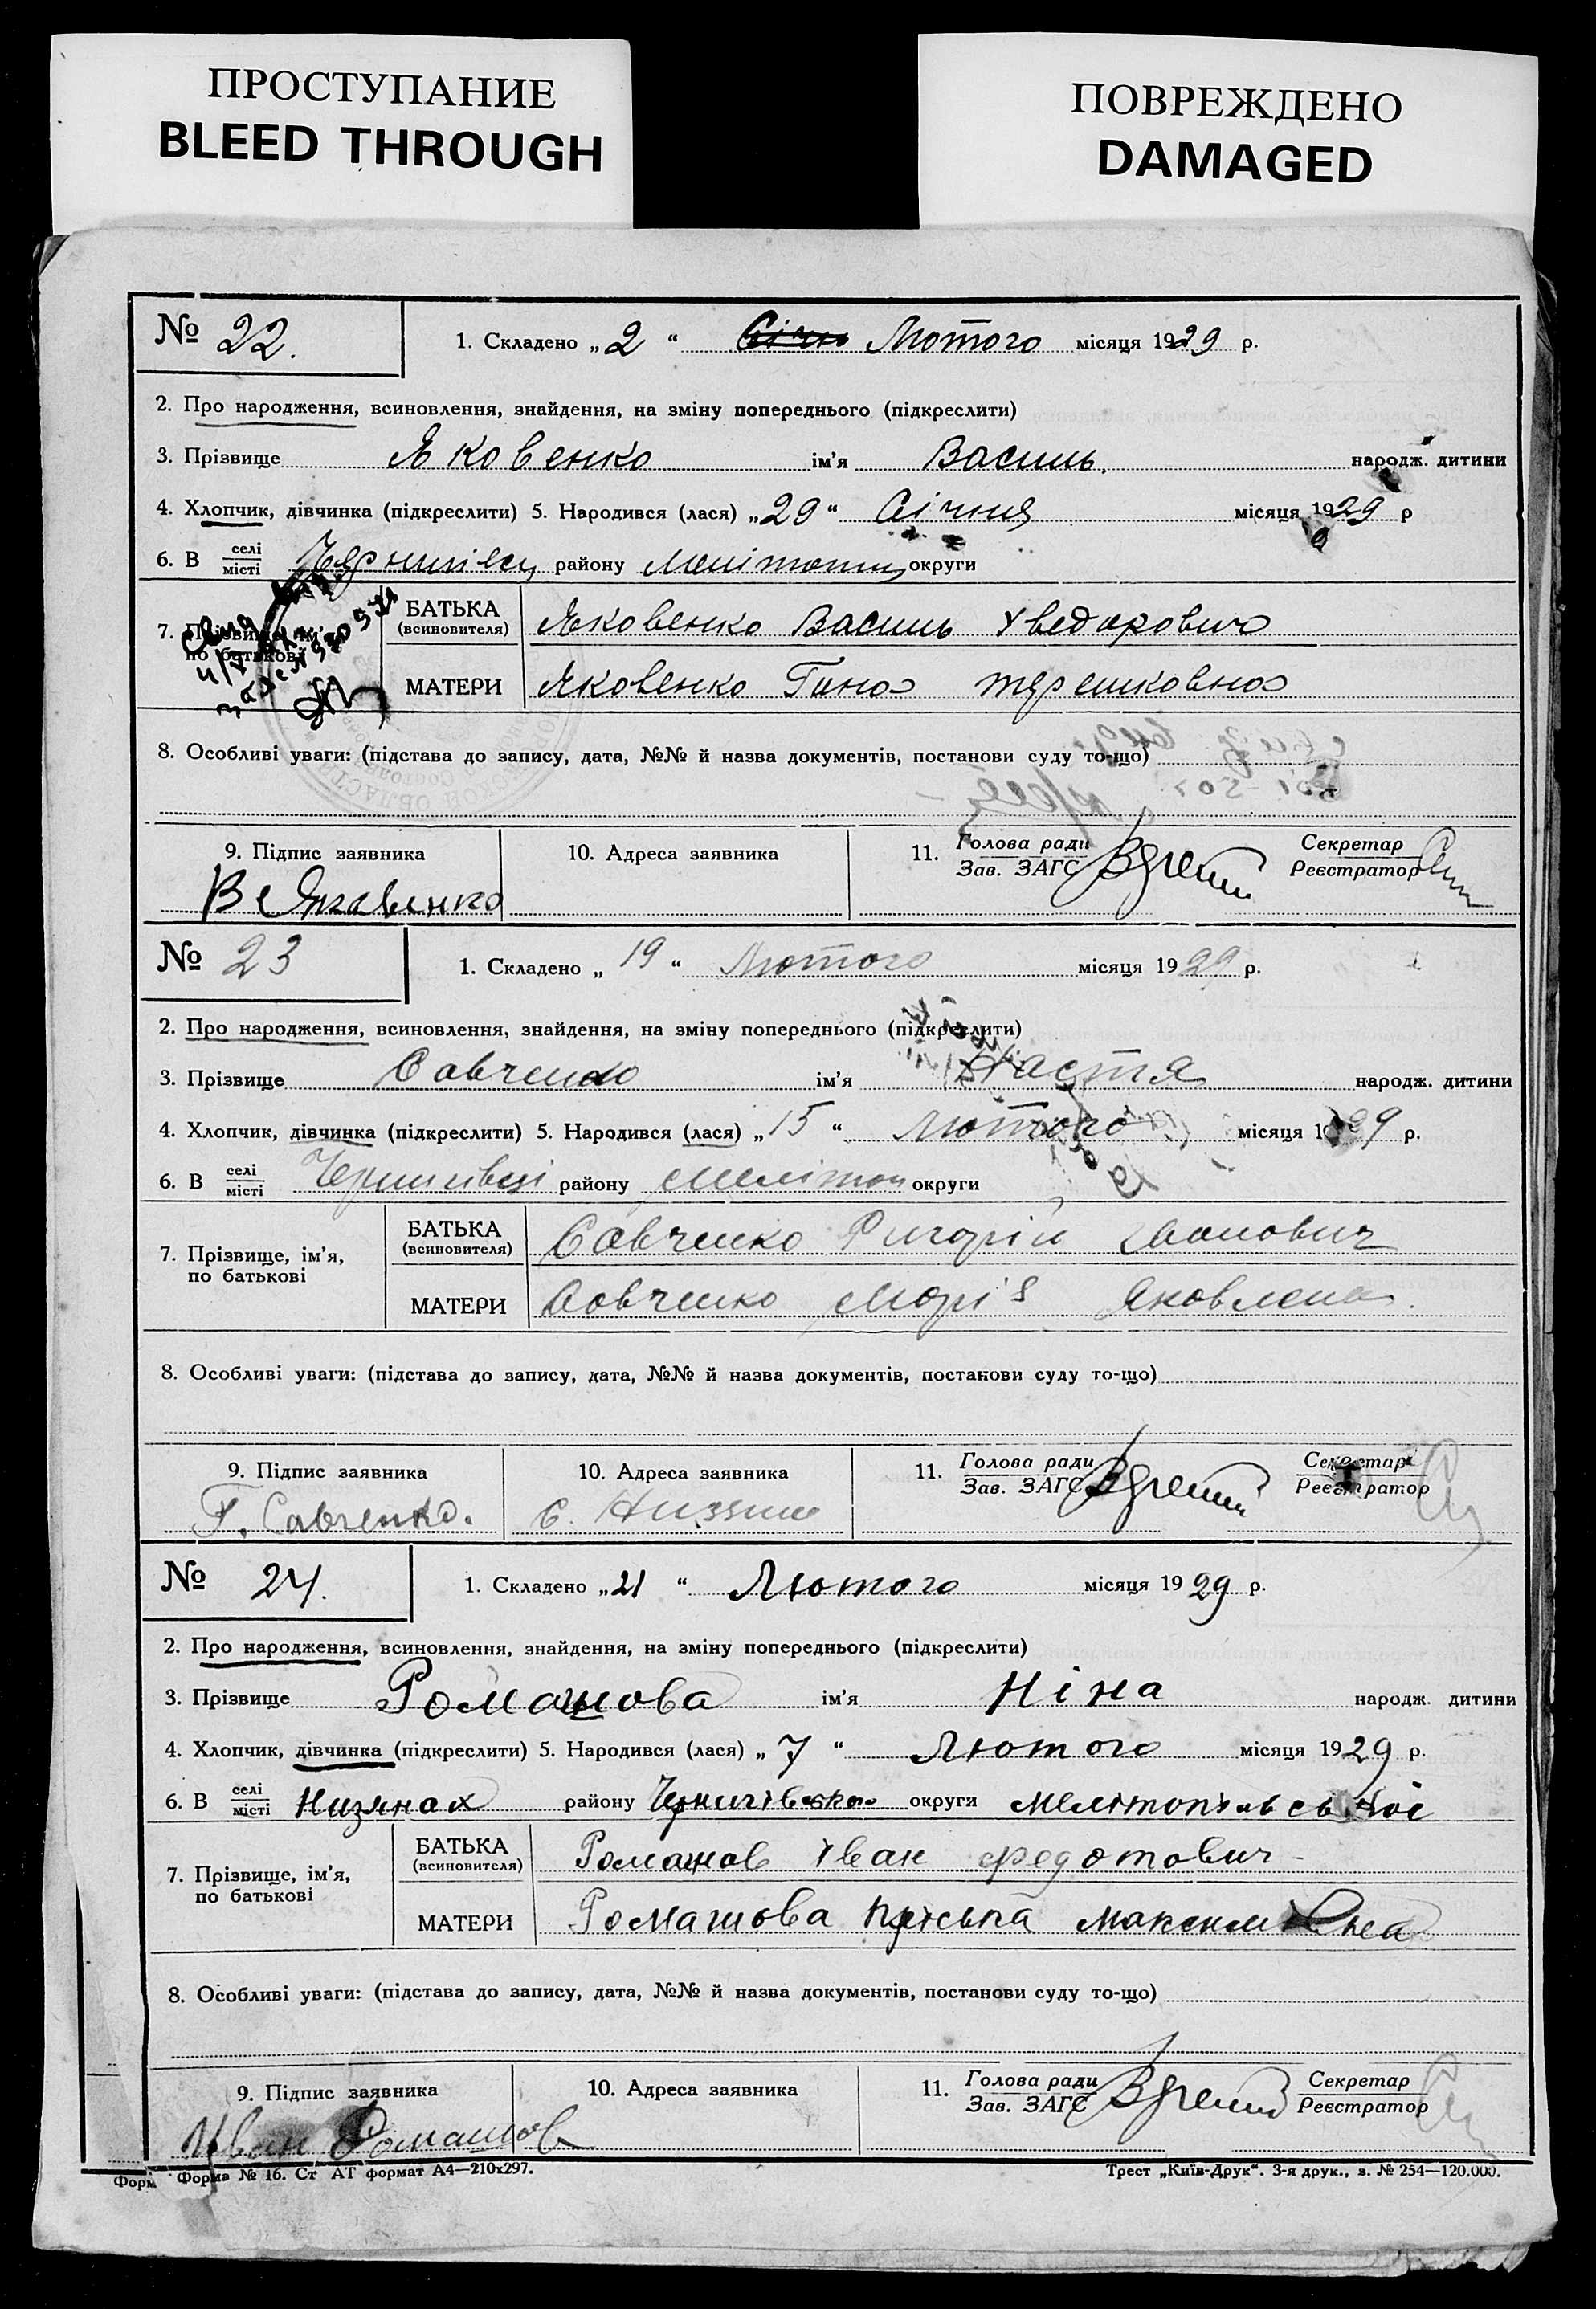 ПРОСТУПАНИЕ
BLEED THROUGH
ПОВРЕЖДЕНО
DAMAGED
№ 22. 1. Складено „2“ Лютого місяця 1929 р.
2. Про народження, всиновлення, знайдення, на зміну попереднього (підкреслити)
3. Прізвище Яковенко ім'я Василь. народж. дитини
4. Хлопчик, дівчинка (підкреслити) 5. Народився (лася) „29“ Січня місяця 1929 р
6. В селі місті району округи
7. Прізвище, ім'я, по батькові
БАТЬКА (всиновителя) Яковенко Василь
МАТЕРИ Яковенко Гана
8. Особливі уваги: (підстава до запису, дата, №№ й назва документів, постанови суду то-що)
9. Підпис заявника 10. Адреса заявника 11. Голова ради Зав. ЗАГС Секретар Реєстратор
№ 23 1. Складено „19“ Лютого місяця 1929 р.
2. Про народження, всиновлення, знайдення, на зміну попереднього (підкреслити)
3. Прізвище Савченко ім'я Настя народж. дитини
4. Хлопчик, дівчинка (підкреслити) 5. Народився (лася) „15“ Лютого місяця 1929 р.
6. В селі місті Чернигівці району Мелітоп округи
7. Прізвище, ім'я, по батькові
БАТЬКА (всиновителя) Савченко Григорій Іванович
МАТЕРИ Савченко Марія
8. Особливі уваги: (підстава до запису, дата, №№ й назва документів, постанови суду то-що)
9. Підпис заявника 10. Адреса заявника 11. Голова ради Зав. ЗАГС Секретар Реєстратор
Г. Савченко. с.
№ 24. 1. Складено „21“ Лютого місяця 1929 р.
2. Про народження, всиновлення, знайдення, на зміну попереднього (підкреслити)
3. Прізвище Ромашова ім'я Ніна народж. дитини
4. Хлопчик, дівчинка (підкреслити) 5. Народився (лася) „7“ Лютого місяця 1929 р.
6. В селі місті Низянах району округи Мелітопільської
7. Прізвище, ім'я, по батькові
БАТЬКА (всиновителя) Ромашов Іван Федотович
МАТЕРИ Ромашова
8. Особливі уваги: (підстава до запису, дата, №№ й назва документів, постанови суду то-що)
9. Підпис заявника 10. Адреса заявника 11. Голова ради Зав. ЗАГС Секретар Реєстратор
Иван Ромашов
Форм Форма № 16. Ст АТ формат А4—210х297. Трест „Київ-Друк“. 3-я друк., з. № 254—120.000.